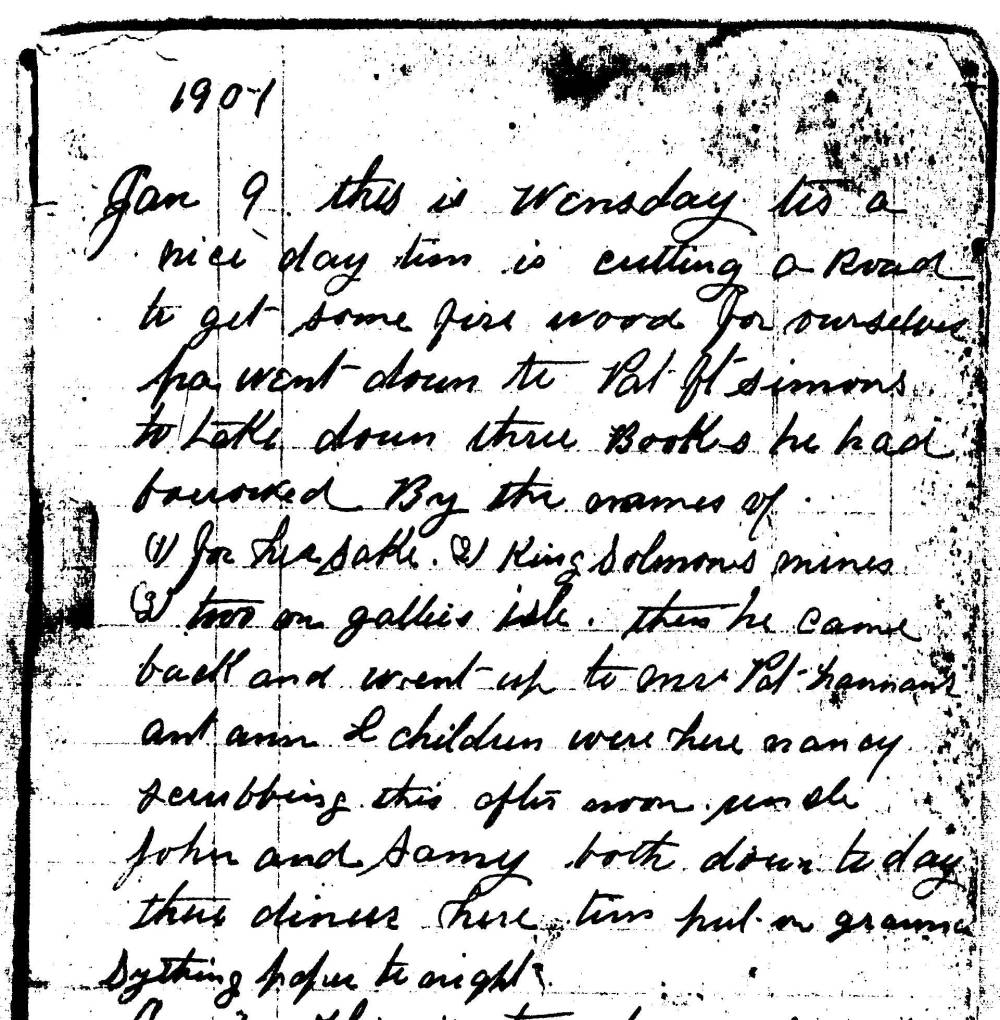 1901
Jan 9 this is Wensday tis a
nice day tim is cutting a Road
to get some fire wood for ourselves
pa went down to Pat ft simons
to take down three Books he had
borrowed By the names of
(1) for her sake. (2) King Solmons mines
(3) two on gallies isle. then he came
back and went up to mrs Pat hannan's
ant ann & children were here nancy
scrubbing this after noon uncle
John and Samy both down to day
there diner here tim put on
to night